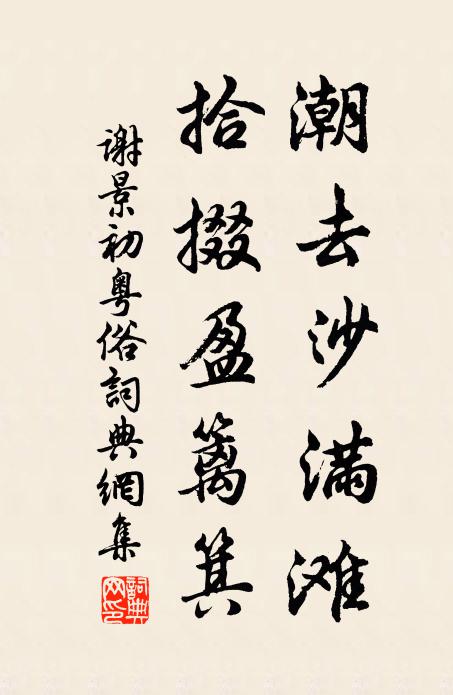 潮去沙满滩
拾掇盈篱箕
謝景初粤俗詞典網集
詞典网印